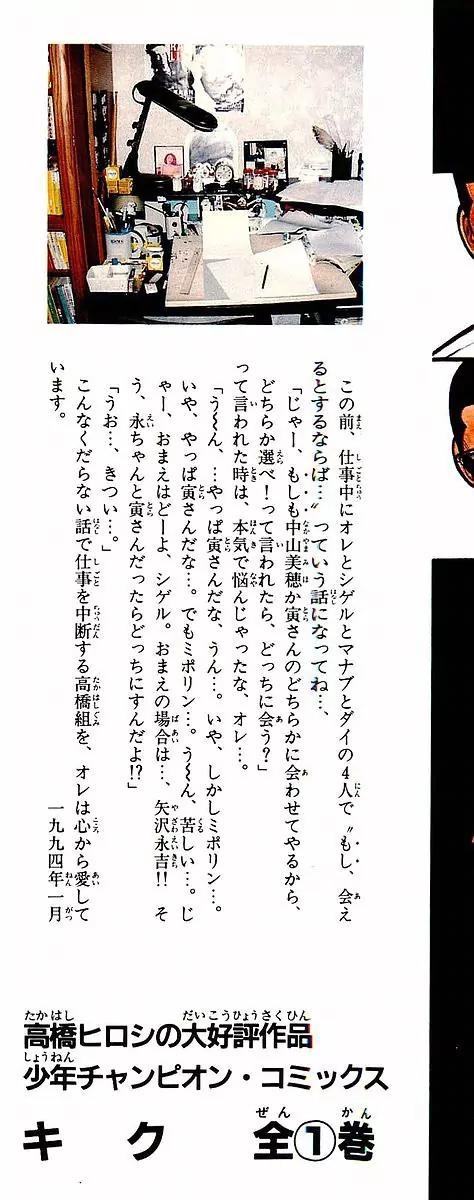 この前、仕事中にオレとシゲルとマナブとダイの4人で〝もし、会え
るとするならば…〟っていう話になってね…、
「じゃー、もしも中山美穂か寅さんのどちらかに会わせてやるから、
どちらか選べ！って言われたら、どっちに会う？」
って言われた時は、本気で悩んじゃったな、オレ…。
「う〜ん、…やっぱ寅さんだな、うん…。いや、しかしミポリン…。
いや、やっぱ寅さんだな…。でもミポリン…。う〜ん、苦しい…。じ
ゃー、おまえはどーよ、シゲル。おまえの場合は…、矢沢永吉!!　そ
う、永ちゃんと寅さんだったらどっちにすんだよ!?」
「うお…、きつい…。」
こんなくだらない話で仕事を中断する高橋組を、オレは心から愛して
います。
一九九四年一月
高橋ヒロシの大好評作品
少年チャンピオン・コミックス
キク　全①巻